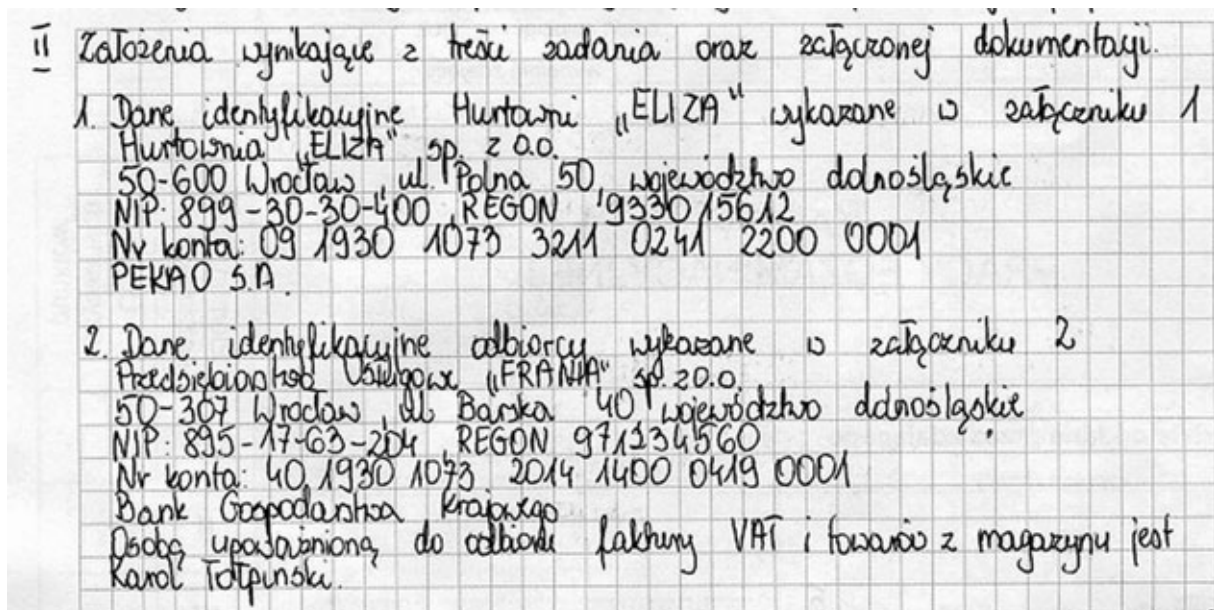 II Założenia wynikające z treści zadania oraz załączonej dokumentacji.
1. Dane identyfikacyjne Hurtowni „ELIZA" wykazane w załączniku 1
Hurtownia „ELIZA" sp. z o.o.
50-600 Wrocław, ul. Polna 50, województwo dolnośląskie
NIP: 899-30-30-400, REGON 933015612
Nr konta: 09 1930 1073 3211 0241 2200 0001
PEKAO S.A.
2. Dane identyfikacyjne odbiorcy wykazane w załączniku 2
Przedsiębiorstwo Usługowe „FRANIA" sp. z o.o.
50-307 Wrocław, ul. Barska 40 województwo dolnośląskie
NIP: 895-17-63-204, REGON 971234560
Nr konta: 40 1930 1073 2014 1400 0419 0001
Bank Gospodarstwa Krajowego
Osobą upoważnioną do odbioru faktury VAT i towarów z magazynu jest
Karol